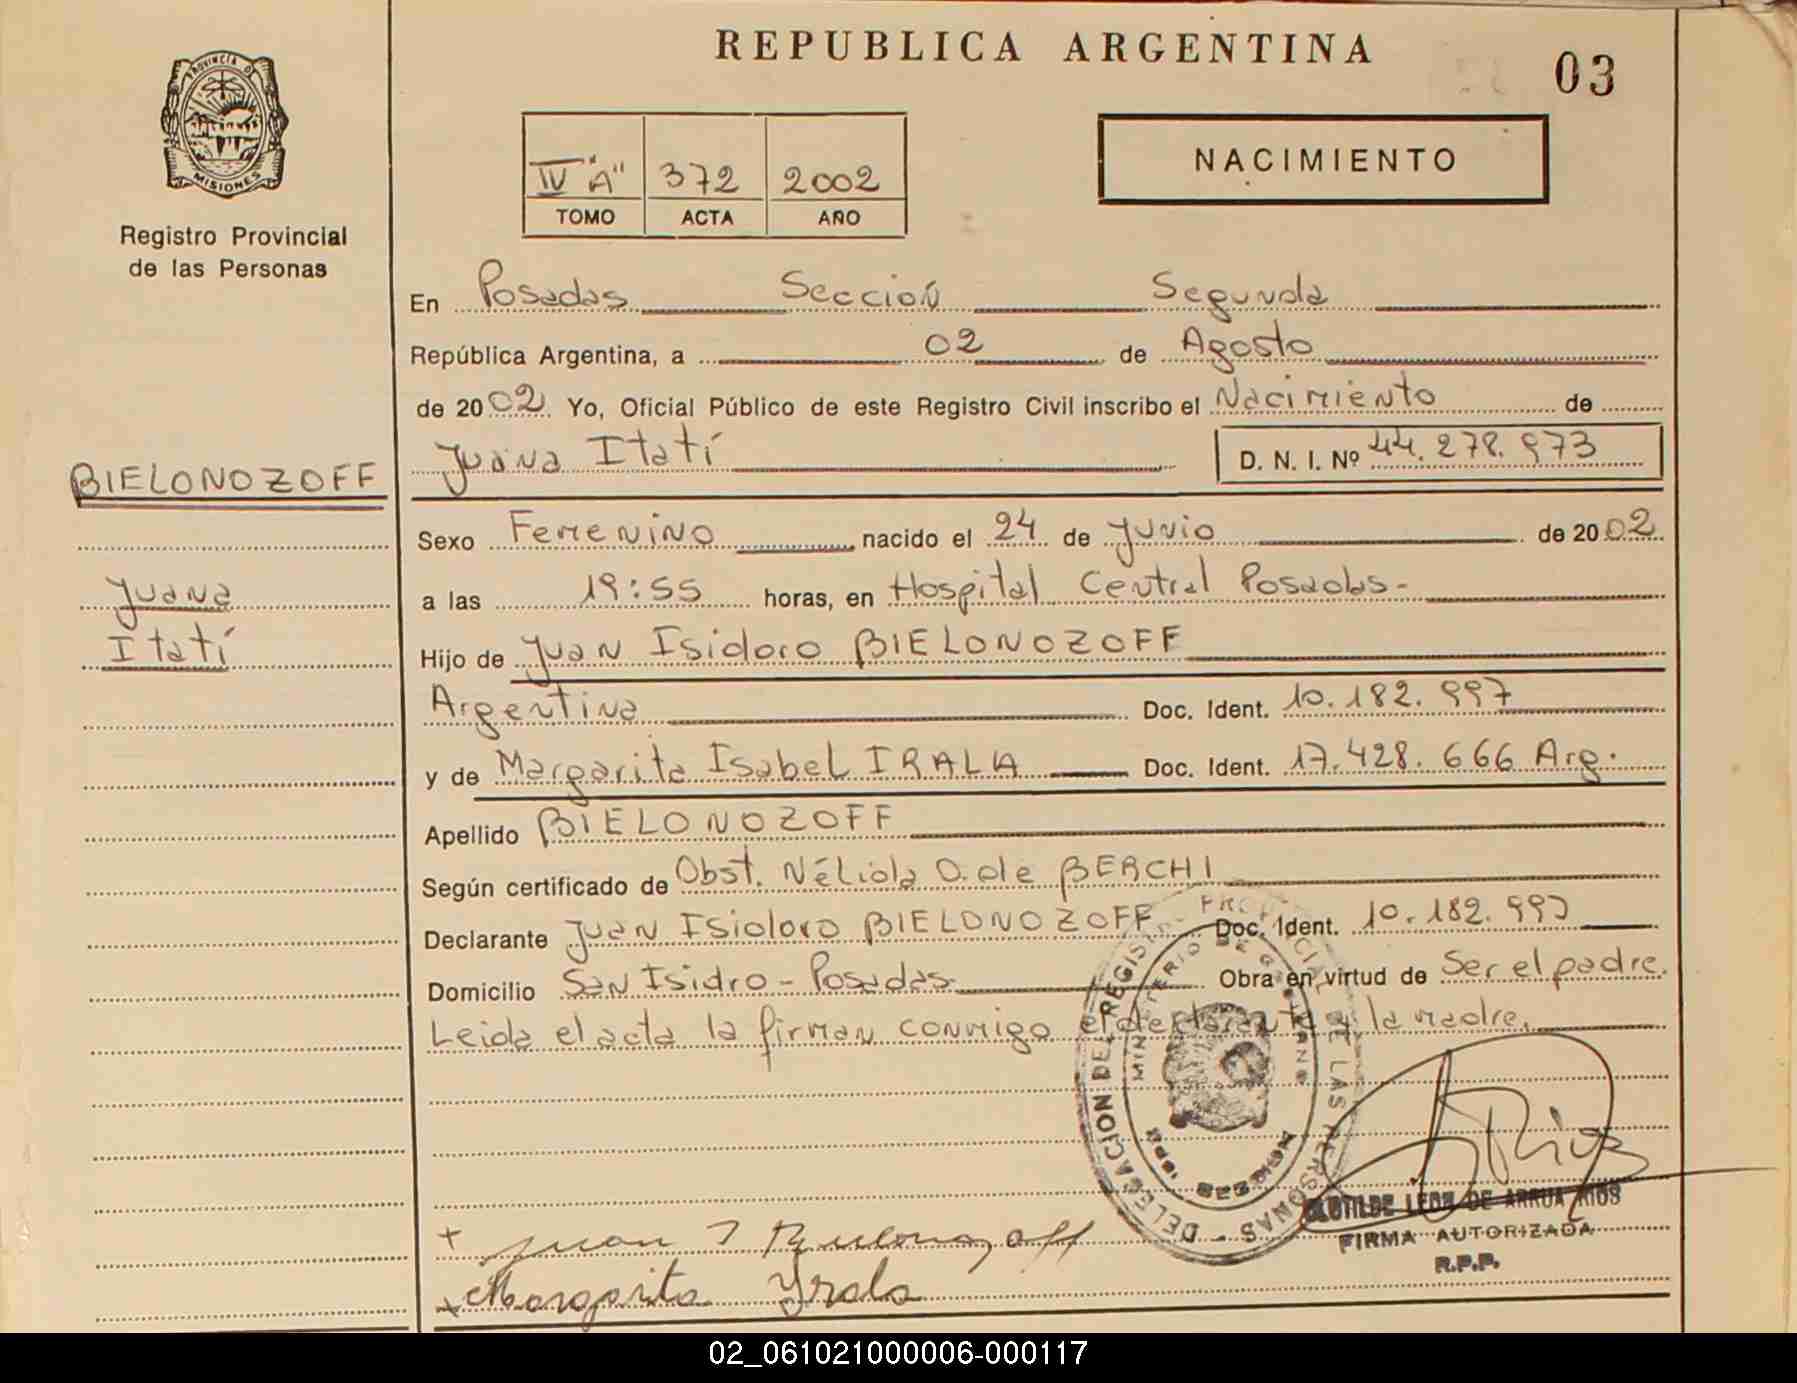 REPUBLICA ARGENTINA
03
PROVINCIA DE
MISIONES
Registro Provincial
de las Personas
IV "A" 372 2002
TOMO ACTA AÑO
NACIMIENTO
En Posadas Sección Segunda
República Argentina, a 02 de Agosto
de 2002 Yo, Oficial Público de este Registro Civil inscribo el Nacimiento de
Juana Itatí D. N. I. Nº 44.278.973
BIELONOZOFF
Juana
Itatí
Sexo Femenino nacido el 24 de Junio de 2002
a las 19:55 horas, en Hospital Central Posadas-
Hijo de Juan Isidoro BIELONOZOFF
Argentina Doc. Ident. 10.182.997
y de Margarita Isabel IRALA Doc. Ident. 17.428.666 Arg.
Apellido BIELONOZOFF
Según certificado de Obst. Nélida O. de BERCHI
Declarante Juan Isidoro BIELONOZOFF Doc. Ident. 10.182.997
Domicilio San Isidro - Posadas Obra en virtud de Ser el padre.
Leida el acta la firman conmigo el declarante y la madre.
DELEGACION DE REGISTRO PROVINCIAL DE LAS PERSONAS
MINISTERIO DE GOBIERNO
Rios
CLOTILDE LEON DE ARRUA RIOS
FIRMA AUTORIZADA
R.P.P.
+ Juan I Bielonozoff
+ Margarita Yrala
02_061021000006-000117